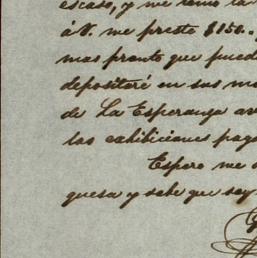 escaso, y me tomo la
á V. me preste $150..
mas pronto que pued
depositaré en sus ma
de La Esperanza av
las exhibiciones pag
Espero me
quesa y sabe que soy